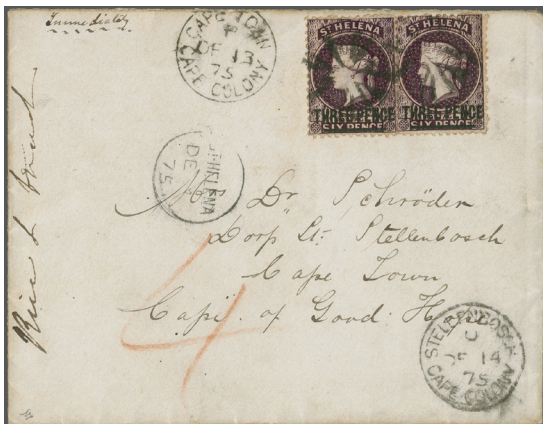 Immediately
CAPE TOWN
DE 13
75
CAPE COLONY
ST HELENA
THREE PENCE
SIX PENCE
ST HELENA
THREE PENCE
SIX PENCE
ST HELENA
DE
75
Dr Schröder
Dorp St. Stellenbosch
Cape Town
Cape of Good Hope
4
STELLENBOSCH
DE 14
75
CAPE COLONY